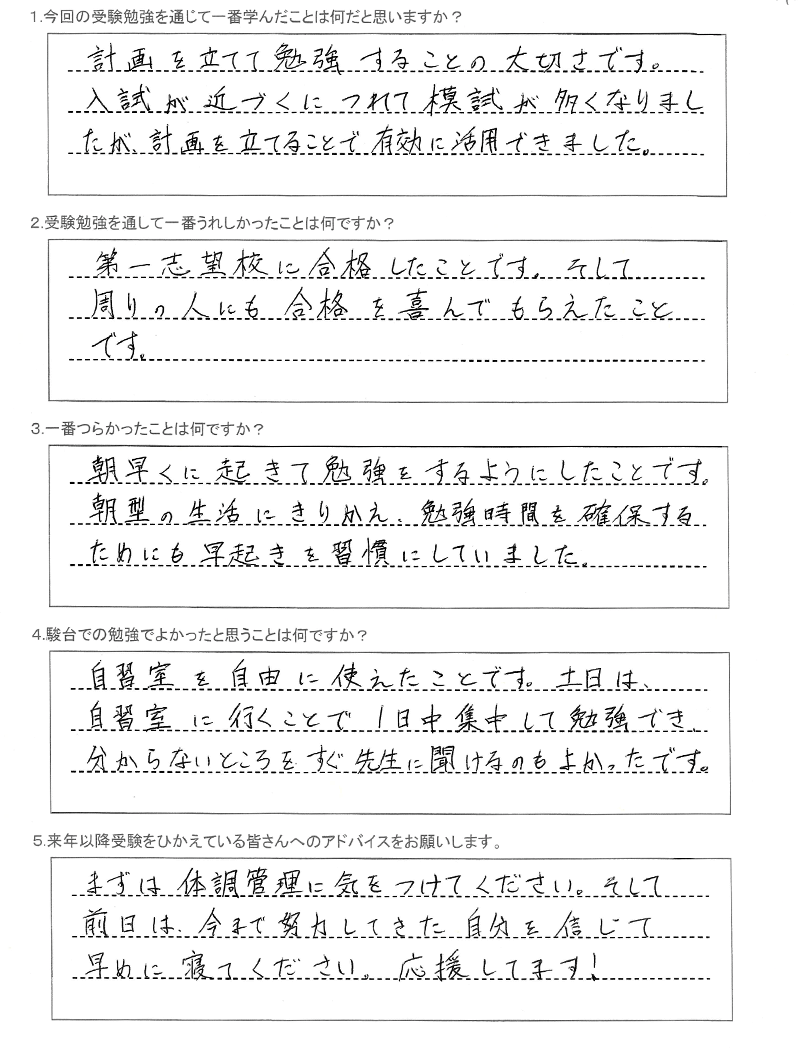 1.今回の受験勉強を通じて一番学んだことは何だと思いますか？
計画を立てて勉強することの大切さです。
入試が近づくにつれて模試が多くなりまし
たが、計画を立てることで有効に活用できました。
2.受験勉強を通して一番うれしかったことは何ですか？
第一志望校に合格したことです。そして
周りの人にも合格を喜んでもらえたこと
です。
3.一番つらかったことは何ですか？
朝早くに起きて勉強をするようにしたことです。
朝型の生活にきりかえ、勉強時間を確保する
ためにも早起きを習慣にしていました。
4.駿台での勉強でよかったと思うことは何ですか？
自習室を自由に使えたことです。土日は、
自習室に行くことで1日中集中して勉強でき、
分からないところをすぐ先生に聞けるのもよかったです。
5.来年以降受験をひかえている皆さんへのアドバイスをお願いします。
まずは体調管理に気をつけてください。そして
前日は、今まで努力してきた自分を信じて
早めに寝てください。応援してます！